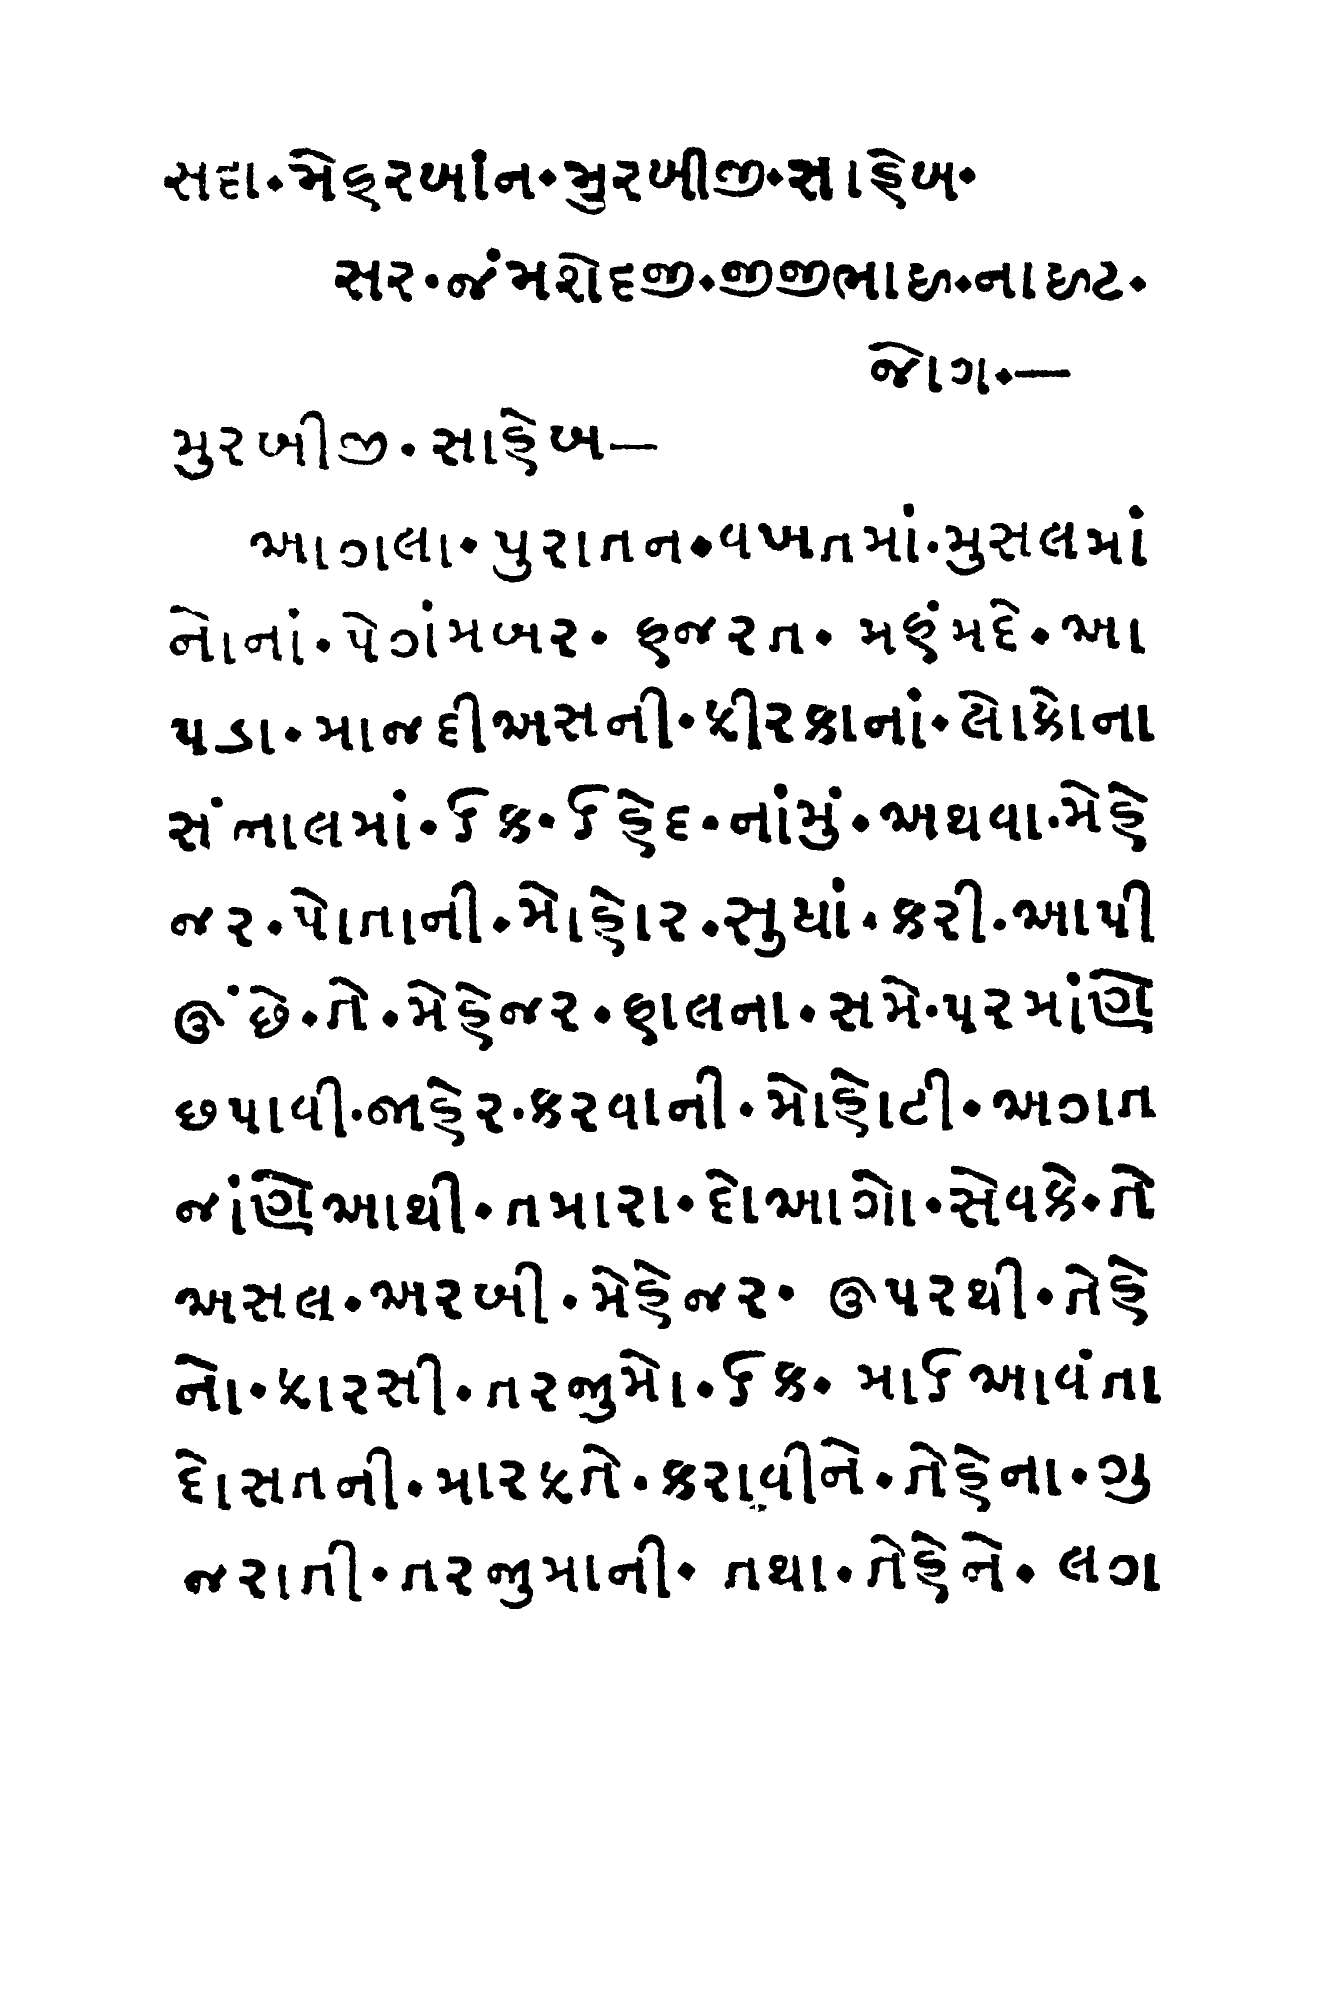 સદા·મેહરબાંન·મુરબીજી·સાહેબ·
સર·જંમશેદજી·જીજીભાઇ·નાઇટ·
જોગ·—
મુરબીજી·સાહેબ—
આગલા·પુરાતન·વખતમાં·મુસલમાં
નોનાં·પેગંમબર·હજરત·મહંમદે·આ
પડા·માજદીઅસની·ફીરકાનાં·લોકોના
સંભાલમાં·એક·એહેદ·નાંમું·અથવા·મેહે
જર·પોતાની·મોહોર·સુધાં·કરી·આપી
ઉંછે·તે·મેહેજર·હાલના·સમે·પરમાંણે
છપાવી·જાહેર·કરવાની·મોહોટી·અગત
જાંણેઆથી·તમારા·દોઆગો·સેવકે·તે
અસલ·અરબી·મેહેજર·ઉપરથી·તેહે
નો·ફારસી·તરજુમો·એક·માએઆવંતા
દોસતની·મારફતે·કરાવીને·તેહેના·ગુ
જરાતી·તરજુમાની·તથા·તેહેને·લગ